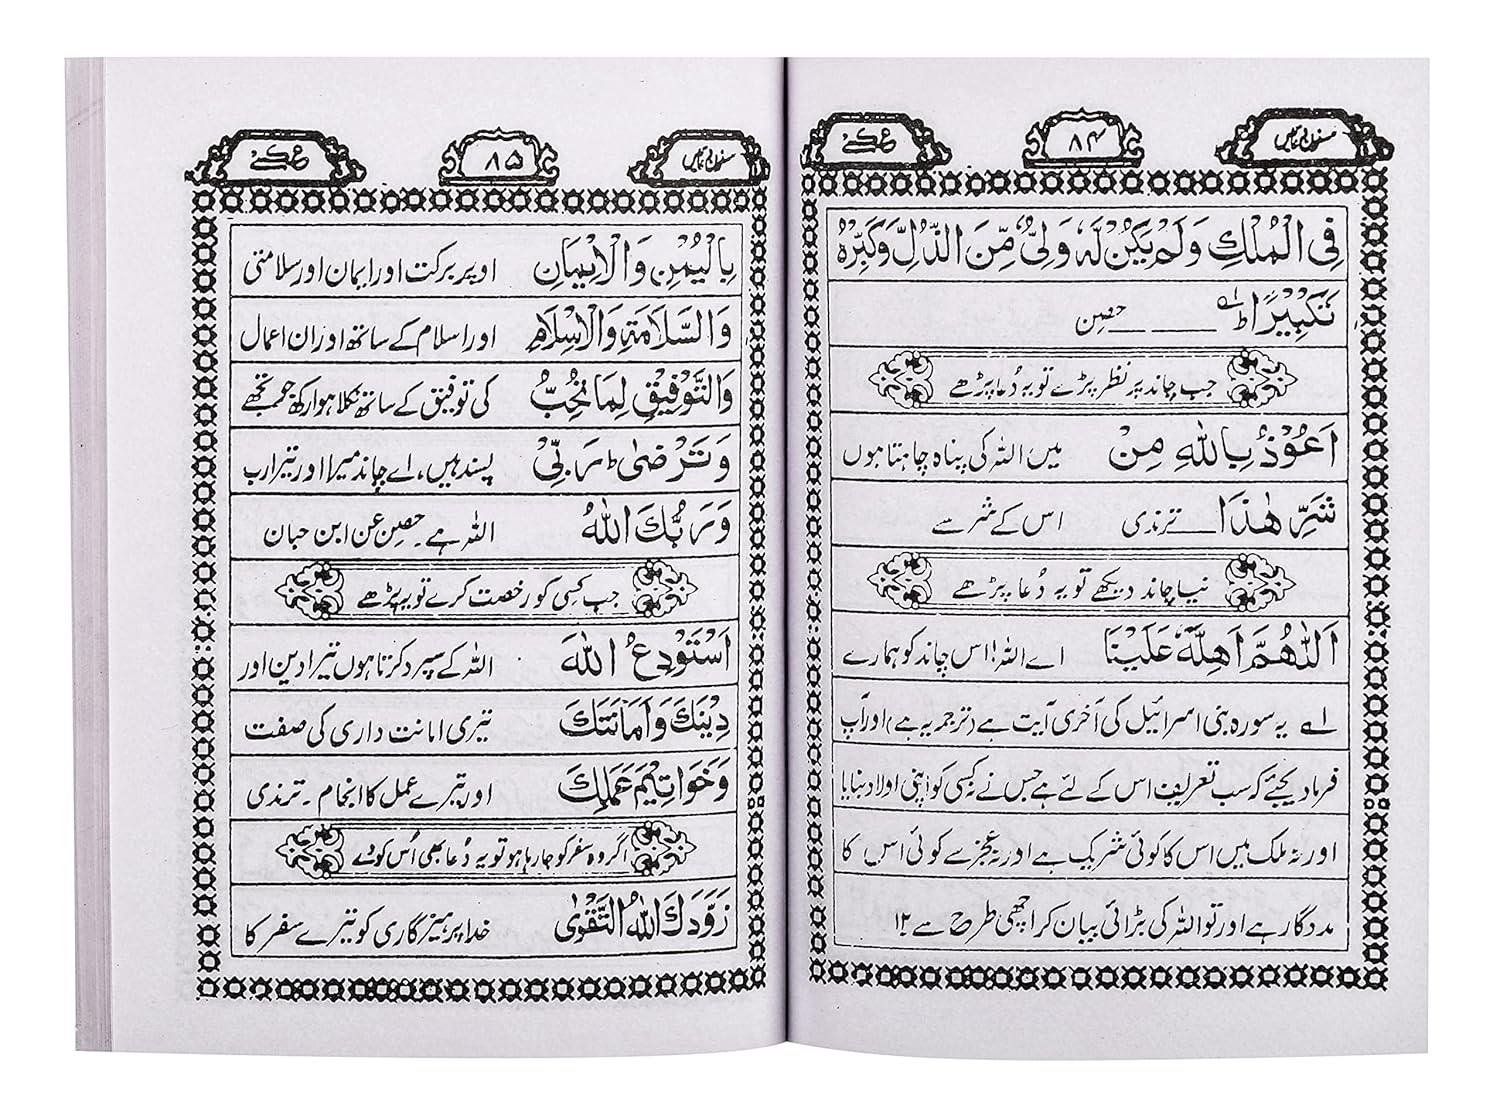 مسنون دعائیں ۸۴ عکسی
فِی الْمُلْكِ وَلَمْ یَكُنْ لَّهٗ وَلِیٌّ مِّنَ الذُّلِّ وَكَبِّرْهُ
تَكْبِیْرًا ط لے حصن
جب چاند پر نظر پڑے تو یہ دُعا پڑھے
اَعُوْذُ بِاللّٰهِ مِنْ میں اللہ کی پناہ چاہتا ہوں
شَرِّ هٰذَا ترمذی اس کے شر سے
نیا چاند دیکھے تو یہ دُعا پڑھے
اَللّٰهُمَّ اَهِلَّهٗ عَلَیْنَا اے اللہ! اس چاند کو ہمارے
لے یہ سورہ بنی اسرائیل کی آخری آیت ہے (ترجمہ یہ ہے) اور آپ
فرما دیجئے کہ سب تعریف اس کے لئے ہے جس نے کسی کو اپنی اولاد نہ بنایا
اور نہ ملک میں اس کا کوئی شریک ہے اور نہ عجز سے کوئی اس کا
مددگار ہے اور تو اللہ کی بڑائی بیان کر اچھی طرح سے ۱۲
مسنون دعائیں ۸۵ عکسی
بِالْیُمْنِ وَالْاِیْمَانِ اوپر برکت اور ایمان اور سلامتی
وَالسَّلَامَةِ وَالْاِسْلَامِ اور اسلام کے ساتھ اور ان اعمال
وَالتَّوْفِیْقِ لِمَا تُحِبُّ کی توفیق کے ساتھ نکلا ہوا رکھ جو تجھے
وَتَرْضٰی ط رَبِّیْ پسند ہیں، اے چاند میرا اور تیرا رب
وَرَبُّكَ اللّٰهُ اللہ ہے۔ حصن عن ابن حبان
جب کسی کو رخصت کرے تو یہ پڑھے
اَسْتَوْدِعُ اللّٰهَ اللہ کے سپرد کرتا ہوں تیرا دین اور
دِیْنَكَ وَاَمَانَتَكَ تیری امانت داری کی صفت
وَخَوَاتِیْمَ عَمَلِكَ اور تیرے عمل کا انجام ۔ ترمذی
اگر وہ سفر کو جا رہا ہو تو یہ دُعا بھی اُس کو دے
زَوَّدَكَ اللّٰهُ التَّقْوٰی خدا پرہیزگاری کو تیرے سفر کا